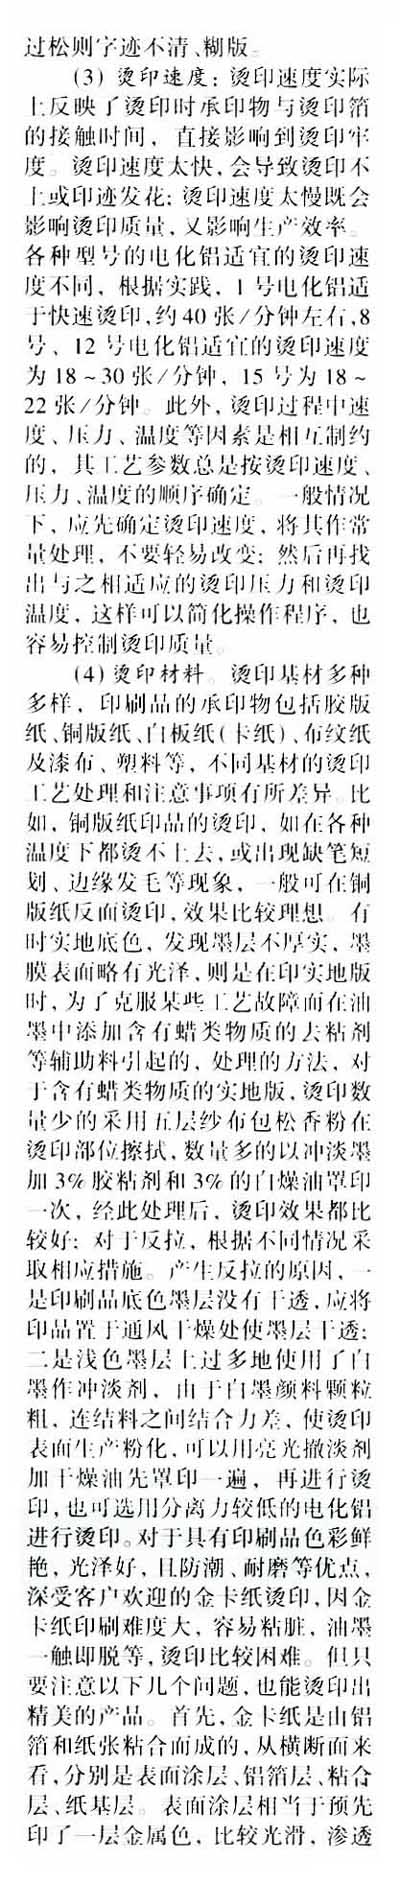 过松则字迹不清、糊版。
(3) 烫印速度：烫印速度实际
上反映了烫印时承印物与烫印箔
的接触时间，直接影响到烫印牢
度。烫印速度太快，会导致烫印不
上或印迹发花；烫印速度太慢既会
影响烫印质量，又影响生产效率。
各种型号的电化铝适宜的烫印速
度不同，根据实践，1 号电化铝适
于快速烫印，约 40 张/分钟左右，8
号、12 号电化铝适宜的烫印速度
为 18 ~ 30 张/分钟，15 号为 18 ~
22 张/分钟。此外，烫印过程中速
度、压力、温度等因素是相互制约
的，其工艺参数总是按烫印速度、
压力、温度的顺序确定。一般情况
下，应先确定烫印速度，将其作常
量处理，不要轻易改变；然后再找
出与之相适应的烫印压力和烫印
温度，这样可以简化操作程序，也
容易控制烫印质量。
(4) 烫印材料。烫印基材多种
多样，印刷品的承印物包括胶版
纸、铜版纸、白板纸(卡纸)、布纹纸
及漆布、塑料等，不同基材的烫印
工艺处理和注意事项有所差异。比
如，铜版纸印品的烫印，如在各种
温度下都烫不上去，或出现缺笔短
划、边缘发毛等现象，一般可在铜
版纸反面烫印，效果比较理想。有
时实地底色，发现墨层不厚实，墨
膜表面略有光泽，则是在印实地版
时，为了克服某些工艺故障而在油
墨中添加含有蜡类物质的去粘剂
等辅助料引起的，处理的方法，对
于含有蜡类物质的实地版，烫印数
量少的采用五层纱布包松香粉在
烫印部位擦拭，数量多的以冲淡墨
加 3% 胶粘剂和 3% 的白燥油罩印
一次，经此处理后，烫印效果都比
较好；对于反拉，根据不同情况采
取相应措施。产生反拉的原因，一
是印刷品底色墨层没有干透，应将
印品置于通风干燥处使墨层干透；
二是浅色墨层上过多地使用了白
墨作冲淡剂，由于白墨颜料颗粒
粗，连结料之间结合力差，使烫印
表面生产粉化，可以用亮光撤淡剂
加干燥油先罩印一遍，再进行烫
印，也可选用分离力较低的电化铝
进行烫印。对于具有印刷品色彩鲜
艳，光泽好，且防潮、耐磨等优点，
深受客户欢迎的金卡纸烫印，因金
卡纸印刷难度大，容易粘脏，油墨
一触即脱等，烫印比较困难。但只
要注意以下几个问题，也能烫印出
精美的产品。首先，金卡纸是由铝
箔和纸张粘合而成的，从横断面来
看，分别是表面涂层、铝箔层、粘合
层、纸基层。表面涂层相当于预先
印了一层金属色，比较光滑，渗透